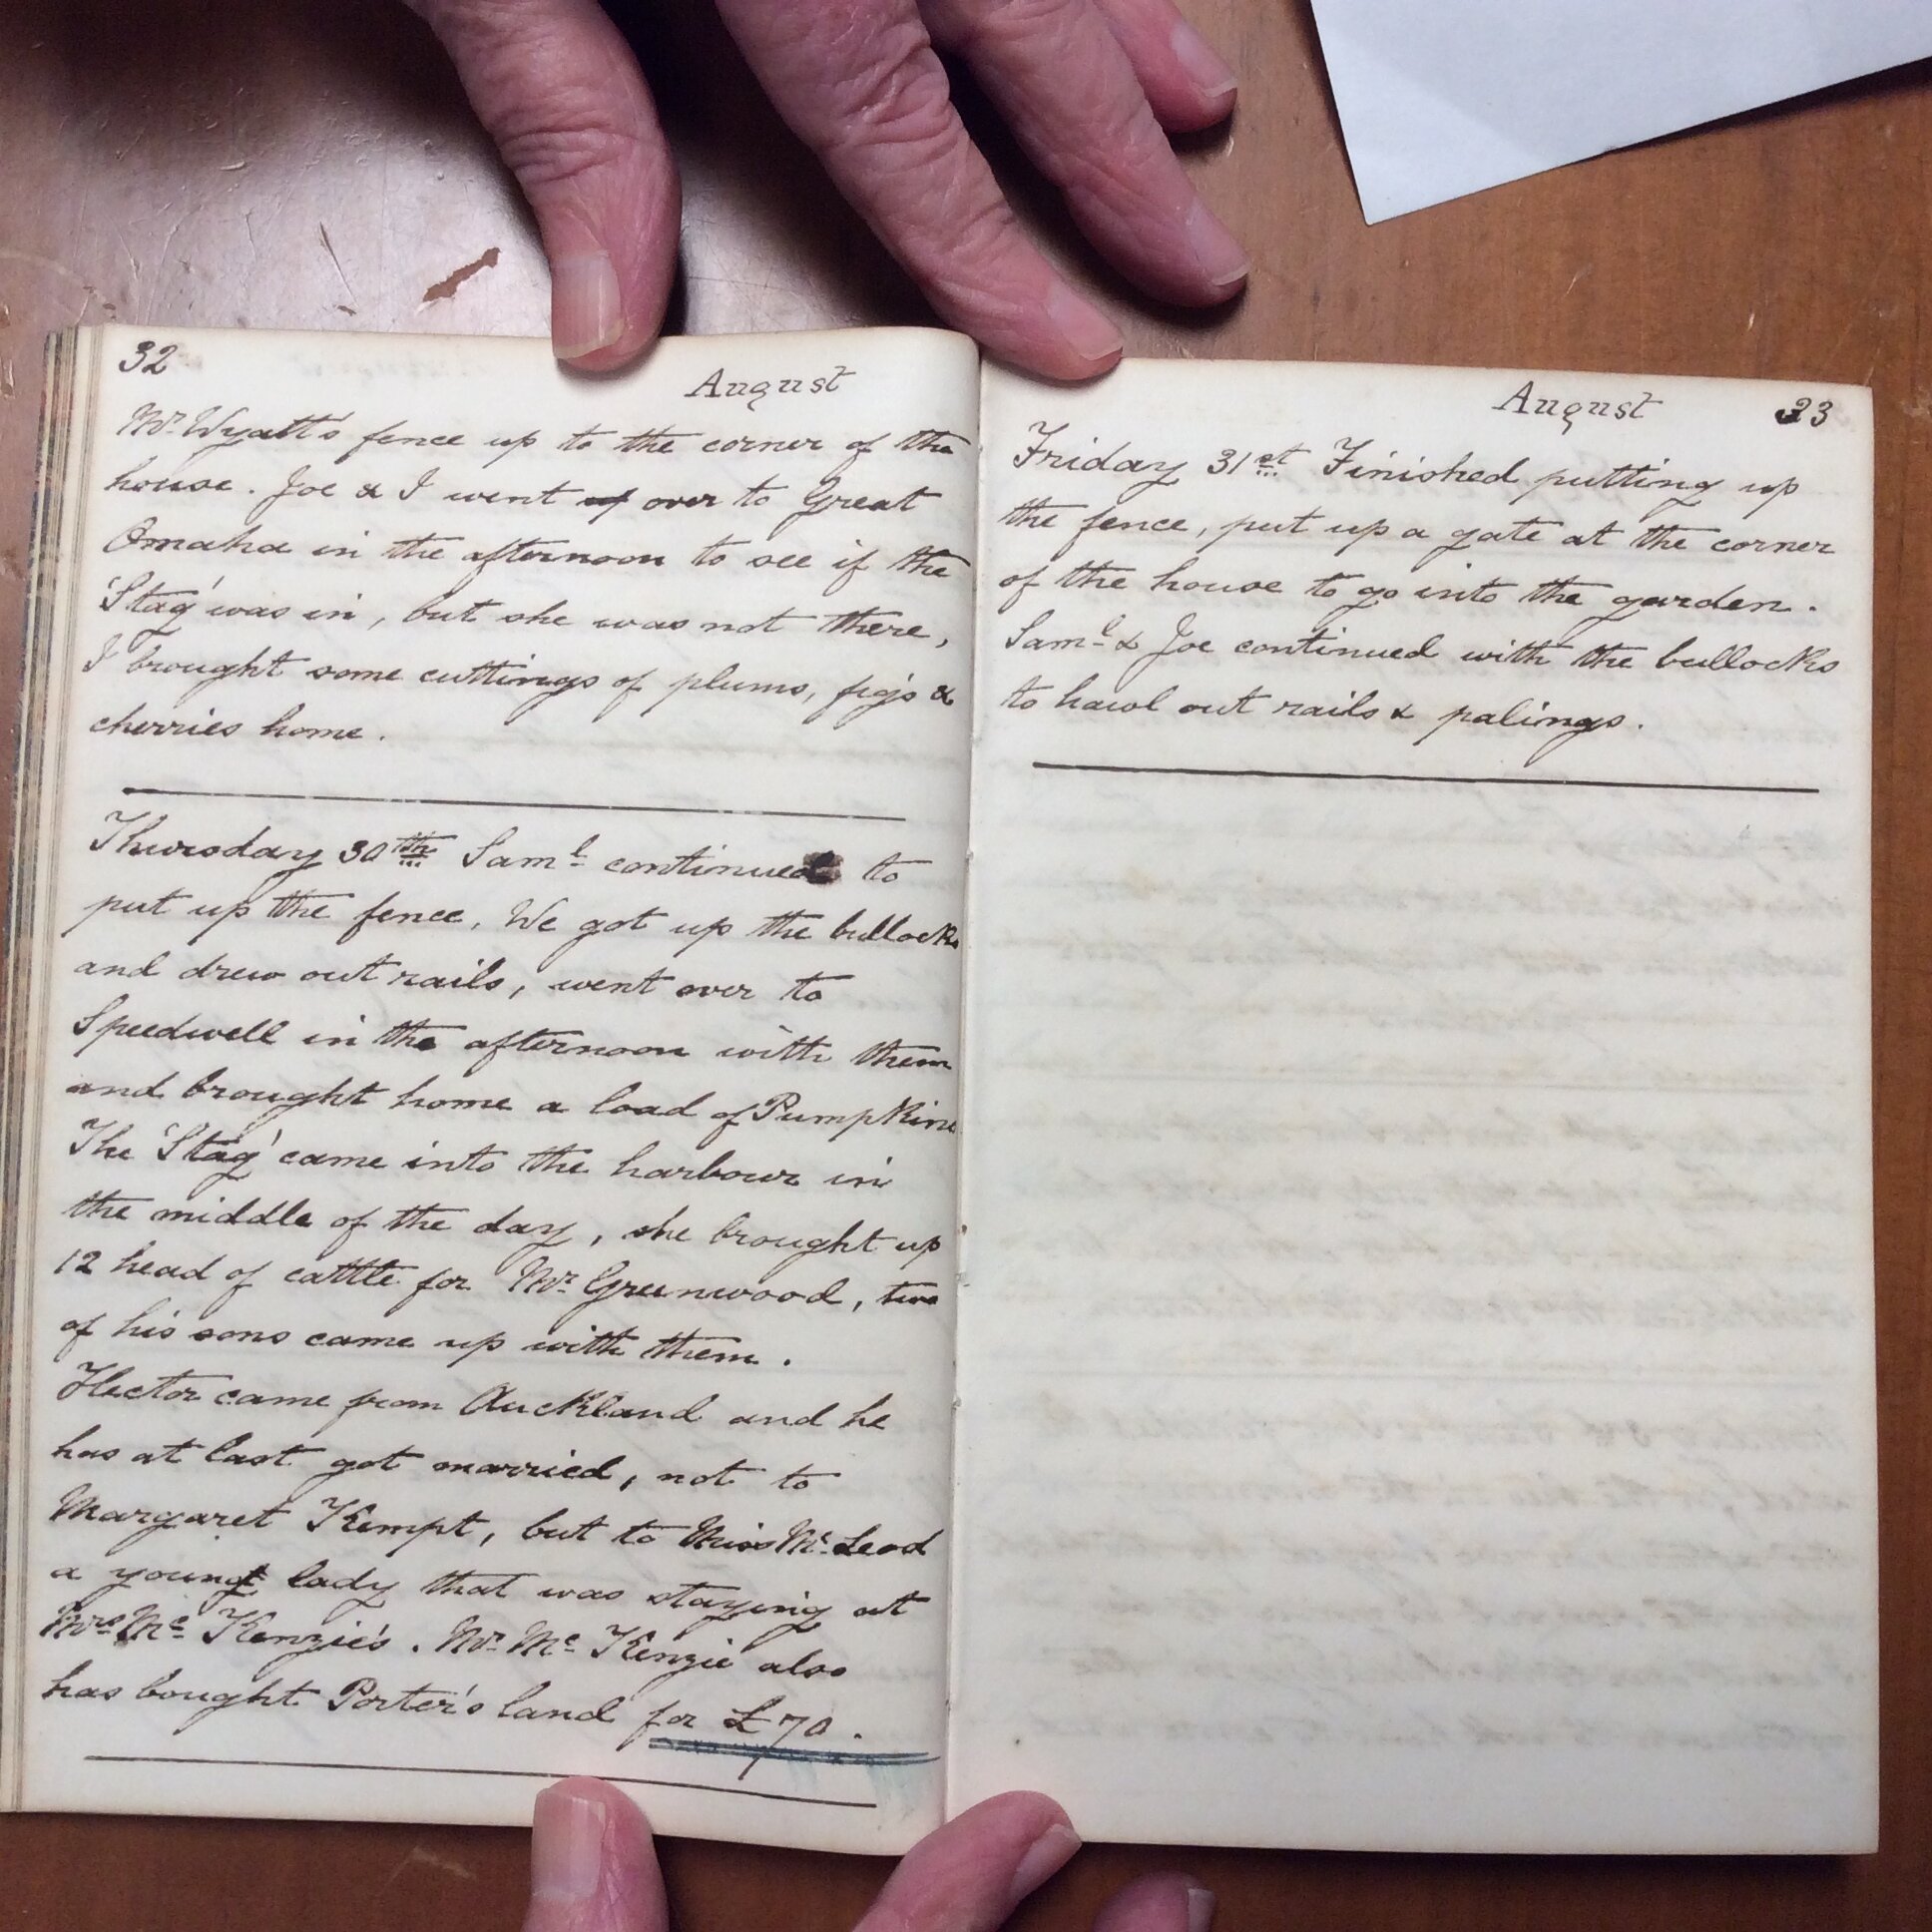 32
August
Mr. Wyatt's fence up to the corner of the
house. Joe & I went up over to Great
Omaha in the afternoon to see if the
'Stag' was in, but she was not there,
I brought some cuttings of plums, figs &
cherries home.
Thursday 30th Saml continued to
put up the fence, We got up the bullocks
and drew out rails, went over to
Speedwell in the afternoon with them
and brought home a load of Pumpkins
The 'Stag' came into the harbour in
the middle of the day, she brought up
12 head of cattle for Mr. Greenwood, two
of his sons came up with them.
Hector came from Auckland and he
has at last got married, not to
Margaret Kempt, but to Miss Mc Leod
a young lady that was staying at
Mrs Mc Kenzie's. Mr. Mc Kenzie also
has bought Porter's land for £70.
August 33
Friday 31st Finished putting up
the fence, put up a gate at the corner
of the house to go into the garden.
Saml & Joe continued with the bullocks
to hawl out rails & palings.